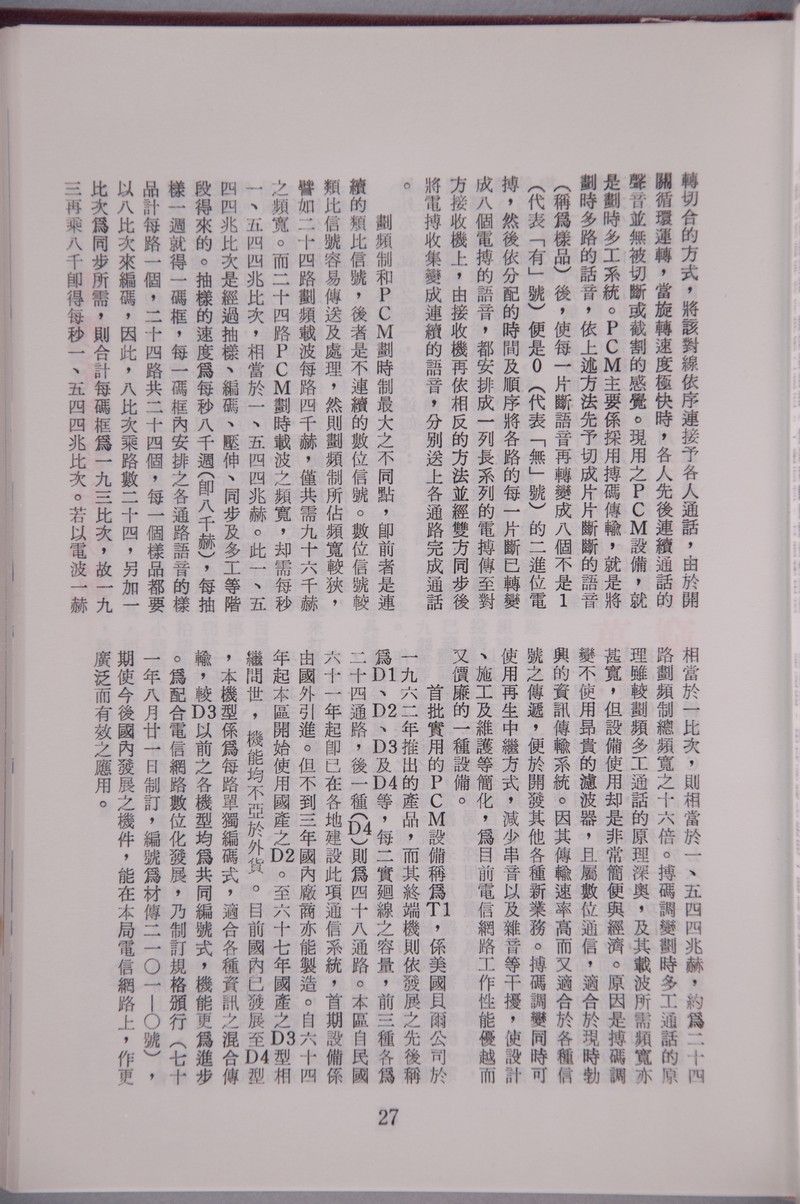 轉切合的方式，將該對線依序連接予各人通話，由於開
關循環運轉，當旋轉速度極快時，各人先後連續通話的
聲音並無被切斷或截割的感覺。現用之PCM設備，就
是劃時多工系統。PCM主要係採用搏碼傳輸，就是將
劃時多路的話音，依上述方法先予切成片片斷斷的語音
（稱爲樣品）後，使每一片斷語音再轉變成八個不是1
（代表「有」號）便是0（代表「無」號）的二進位電
搏，然後依分配的時間及順序將各路的每一片斷已轉變
成八個電搏的語音，都安排成一列長系列的電搏傳至對
方接收機上，由接收機再依相反的方法並經雙方同步後
將電搏收集變成連續的語音，分別送上各通路完成通話
。
劃頻制和PCM劃時制最大之不同點，卽前者是連
續的類比信號，後者是不連續的數位信號。數位信號較
類比信號容易傳送及處理，然則劃頻制所佔頻寬較狹，
譬如二十四路劃頻載波每路四千赫，僅共需九十六千赫
之頻寬。而二十四路PCM劃時載波之頻寬，却需每秒
一、五四四兆比次，相當於一、五四四兆赫。此一、五
四四兆比次是經過抽樣、編碼、壓伸、同步及多工等階
段得來的。抽樣的速度爲每秒八千週（卽八千赫），每抽
樣一週就得一碼框，每一碼框內安排之各通路語音的樣
品計每路一個，二十四路共二十四個，每一個樣品都要
以八比次來編碼，因此，八比次乘路數二十四，另加一
比次爲同步所需，則合計每碼框爲一九三比次，故一九
三再乘八千卽得每秒一、五四四兆比次。若以電波一赫
相當於一比次，則相當於一、五四四兆赫，約爲二十四
路劃頻制總頻寬之十六倍。搏碼調變劃時多工通話的原
理雖較劃頻多工通話的原理深奧，及其載波所需頻寬亦
甚寬，但設備使用却是非常簡便與經濟。原因是搏碼調
變不使用昂貴的濾波器，且屬數位通信，適合於現時勃
興的資訊傳輸系統。因其傳輸速率高而又適合於各種信
號之傳遞，便於開發其他各種新業務。搏碼調變同時可
使用再生中繼方式，減少串音以及雜音等干擾，使設計
、施工及維護等簡化，爲目前電信網路工作性能優越而
又價廉的一種設備。
首批實用的PCM設備稱爲T1，係美國貝爾公司於
一九六二年推出的產品，而其終端機則依發展之先後稱
爲D1、D2、D3及D4等，每二實廻線之容量，前三種各爲
二十四通路，後一種（D4）則爲四十八通路。本區自民國
六十一年起卽已在各地建設此項通信系統，首期設備係
由國外引進。但不到三年國內廠商亦能製造。自六十四
年起本區開始使用國產之D2。至六十七年國產之D3型相
繼問世，機能均不亞於外貨。目前國內已發展至D4型
，本機型係爲每路單獨編碼式，適合各種資訊之混合傳
輸，較D3以前之各機型均爲共同編號式，機能更爲進步
。爲配合電信網路數位化發展，乃制訂規格頒行（七十
一年八月廿一日制訂，編號爲材傳二一〇一—〇號），
期使今後國內發展之機件，能在本局電信網路上，作更
廣泛而有效之應用。
27